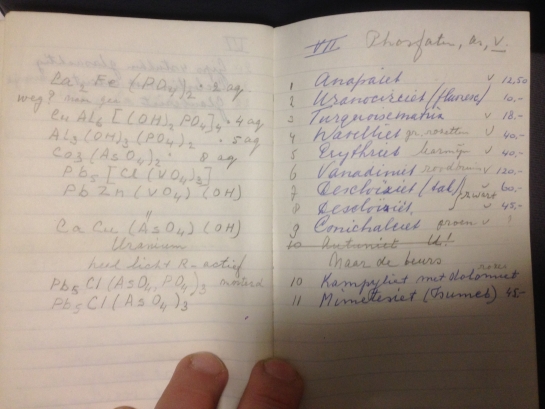 Ca₂ Fe (PO₄)₂ · 2 aq
weg?
Cu Al₆ [(OH)₂ PO₄]₄ · 4 aq
Al₃ (OH)₃ (PO₄)₂ · 5 aq
Co₃ (AsO₄)₂ · 8 aq
Pb₅ [Cl (VO₄)₃]
Pb Zn (VO₄) (OH)
"
Ca Cu (AsO₄) (OH)
Uranium
heel licht R-actief
Pb₅ Cl (AsO₄, PO₄)₃ mosterd
Pb₅ Cl (AsO₄)₃
VII Phosfaten, Ar, V.
1 Anapaiet v 12,50
2 Uranocirciet (fluoresc) v 10,-
3 Turquoisematrix v 18.-
4 Wavelliet gr. rosetten v 40,-
5 Erythriet karmijn v 40,-
6 Vanadiniet roodbruin v 120,-
7 Descloiziet v 60,-
8 Descloiziet zwart v 45,-
9 Conichalciet groen v ?
10 Autuniet U!
Naar de beurs
10 Kampyliet met dolomiet roze
11 Mimetesiet (Tsumeb) 45,-